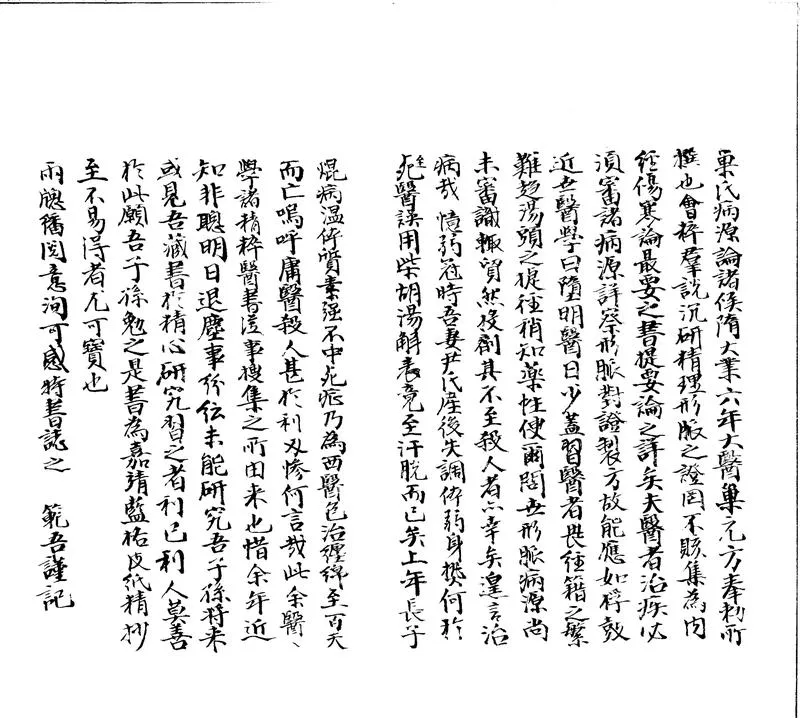 巢氏病源論諸侯隋大業六年大醫巢元方奉勅所
撰也會粹羣說沉研精理形脈之證罔不賅集為內
經傷寒論最要之書提要論之詳矣夫醫者治疾必
須審諸病源詳察形脈對證製方故能應如桴鼓
近世醫學日墮明醫日少蓋習醫者畏經籍之繁
難趨湯頭之捷徑稍知藥性便爾問世形脈病源尚
未審識輒貿然投劑其不至殺人者亦幸矣遑言治
病哉憶弱冠時吾妻尹氏產後失調体弱身㷫何於
至死醫誤用柴胡湯解表竟至汗脫而已矣上年長子
焜病温体質素强不中死症乃為西醫包治纏綿至百天
而亡嗚呼庸醫殺人甚於利刃慘何言哉此余醫、
學諸精粹醫書從事搜集之所由来也惜余年近
知非聰明日退塵事紛紜未能研究吾子孫將来
或見吾藏書於精心研究習之者利己利人莫善
於此願吾子孫勉之是書為嘉靖藍格皮紙精抄
至不易得者尤可寶也
雨牕繙閱意洵可感特書誌之 範吾謹記